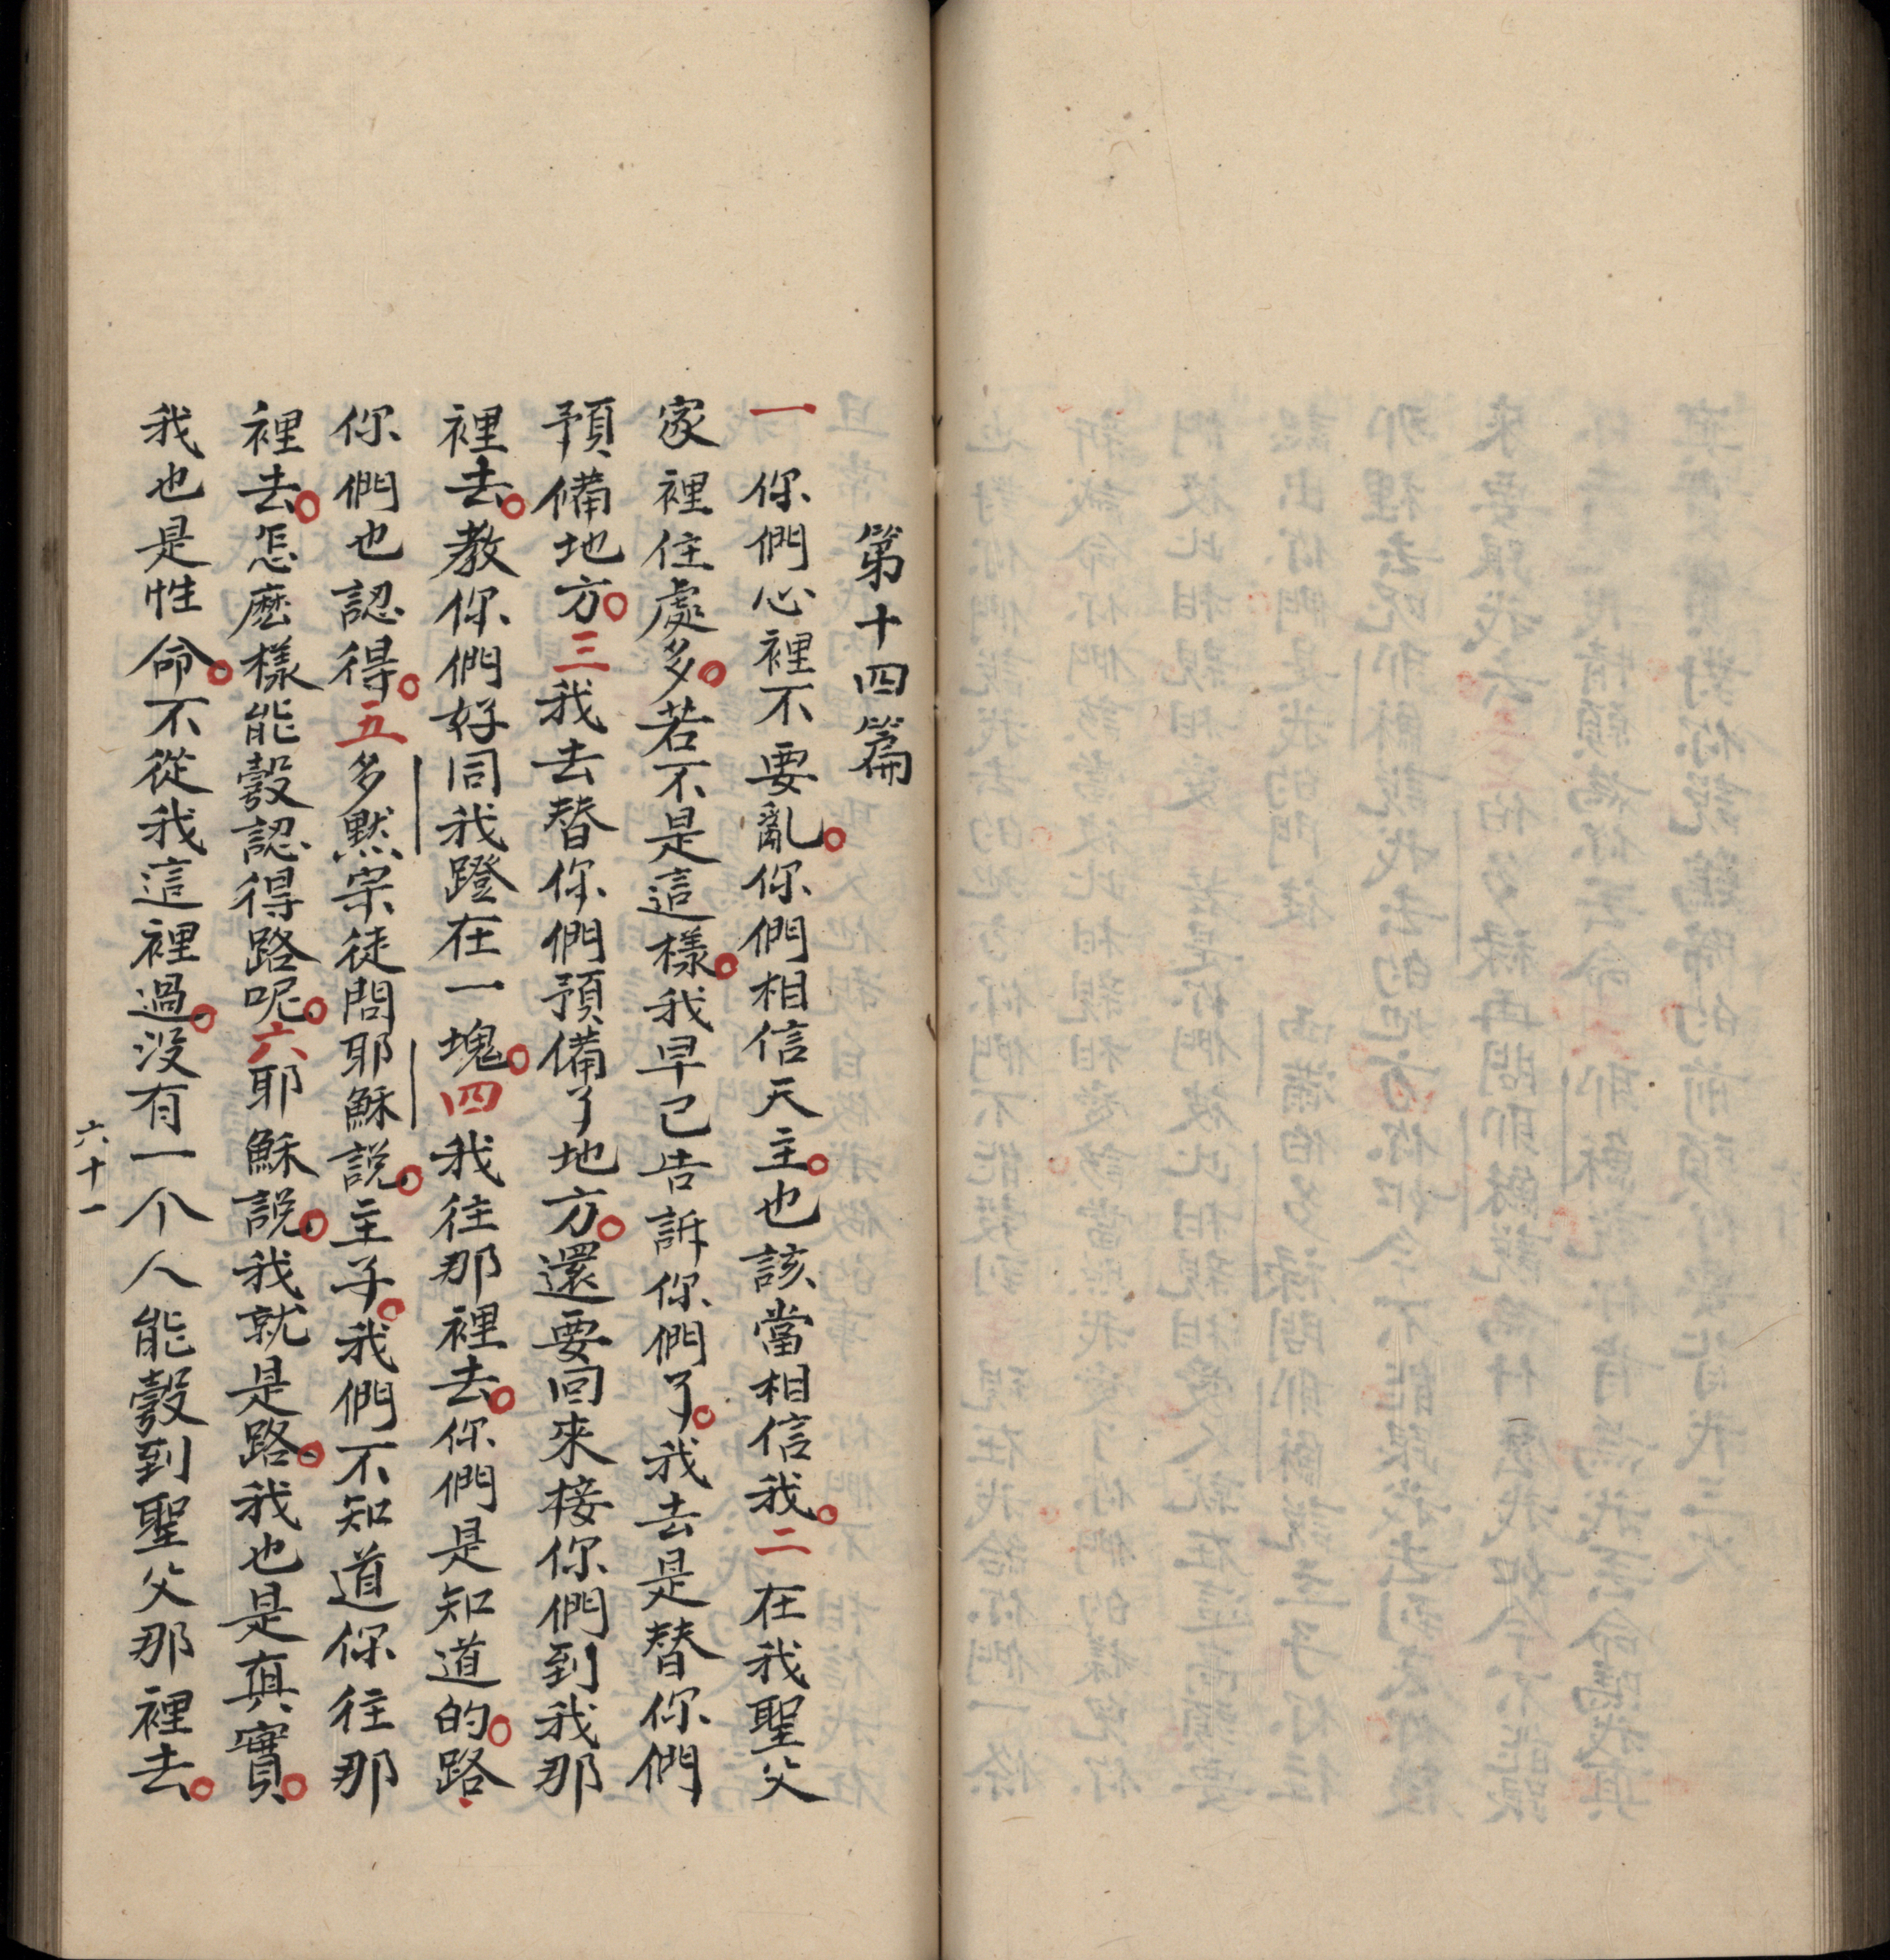 第十四篇
一你們心裡不要亂。你們相信天主。也該當相信我。二在我聖父
家裡住處多。若不是這樣。我早已告訴你們了。我去是替你們
預備地方。三我去替你們預備了地方。還要回來接你們到我那
裡去。教你們好同我蹬在一塊。四我往那裡去。你們是知道的。路、
你們也認得。五多黙宗徒問耶穌說。主子。我們不知道你往那
裡去。怎麽樣能彀認得路呢。六耶穌說。我就是路。我也是真實。
我也是性命。不從我這裡過。没有一个人能彀到聖父那裡去。
六十一